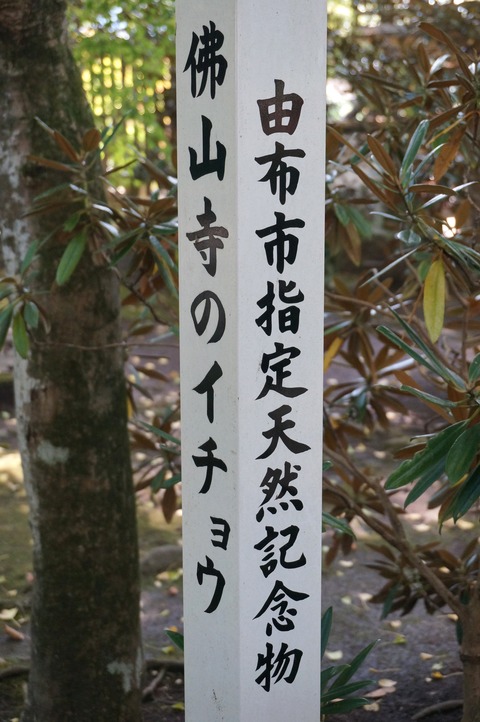 由布市指定天然記念物
佛山寺のイチョウ